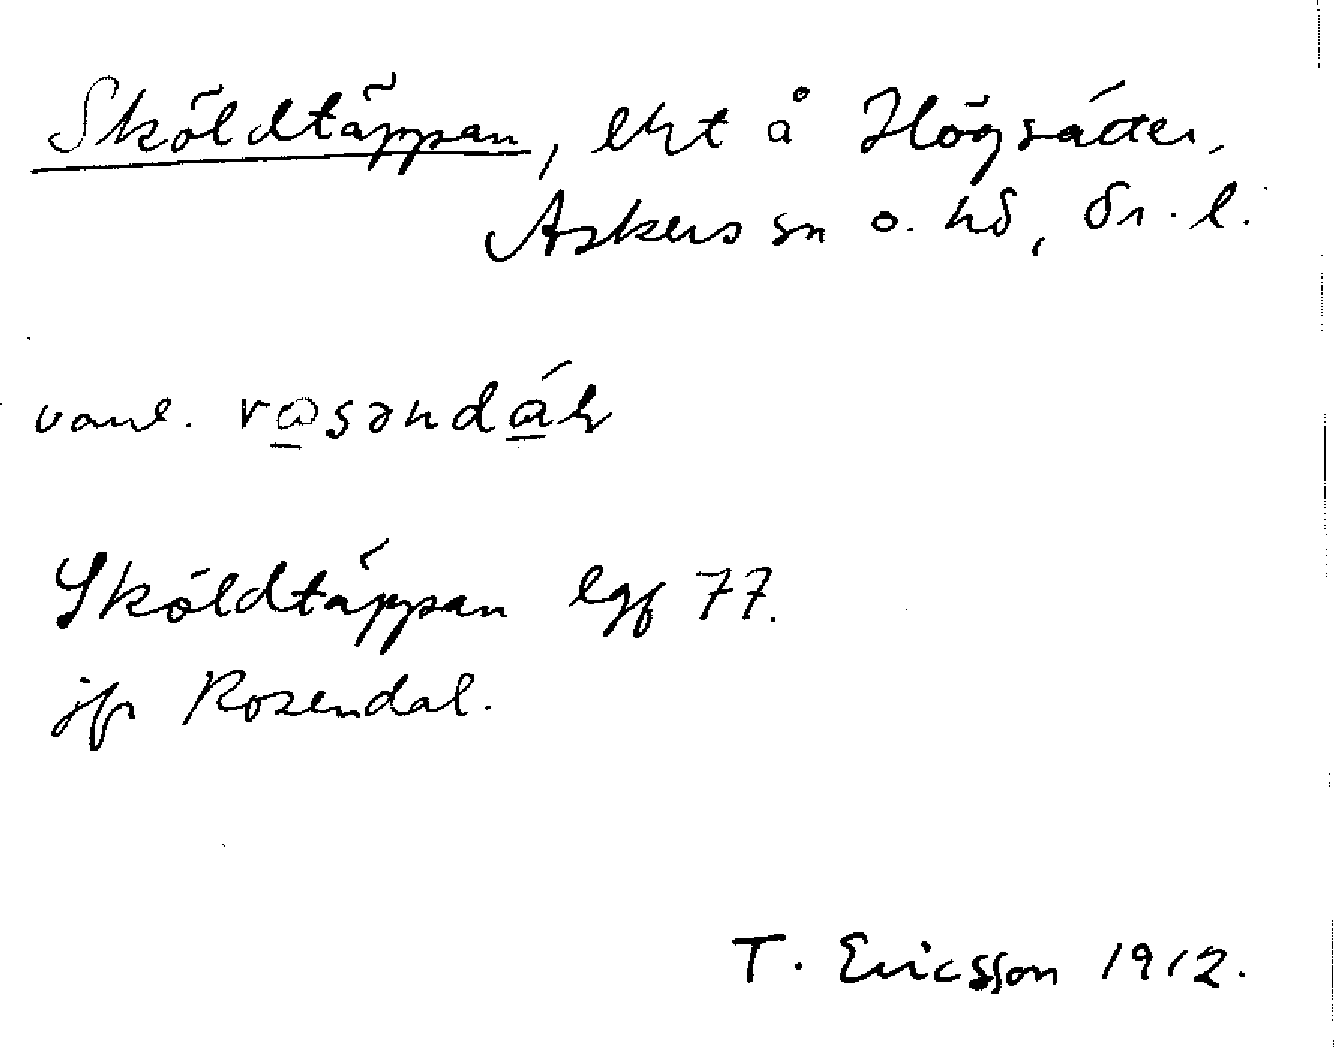 Sköldtäppan, lht å Högsätter,
Askers sn o. hd, Ör. l.
vanl. rosəndáł
Sköldtäppan lgf 77.
jfr Rosendal.
T. Ericsson 1912.